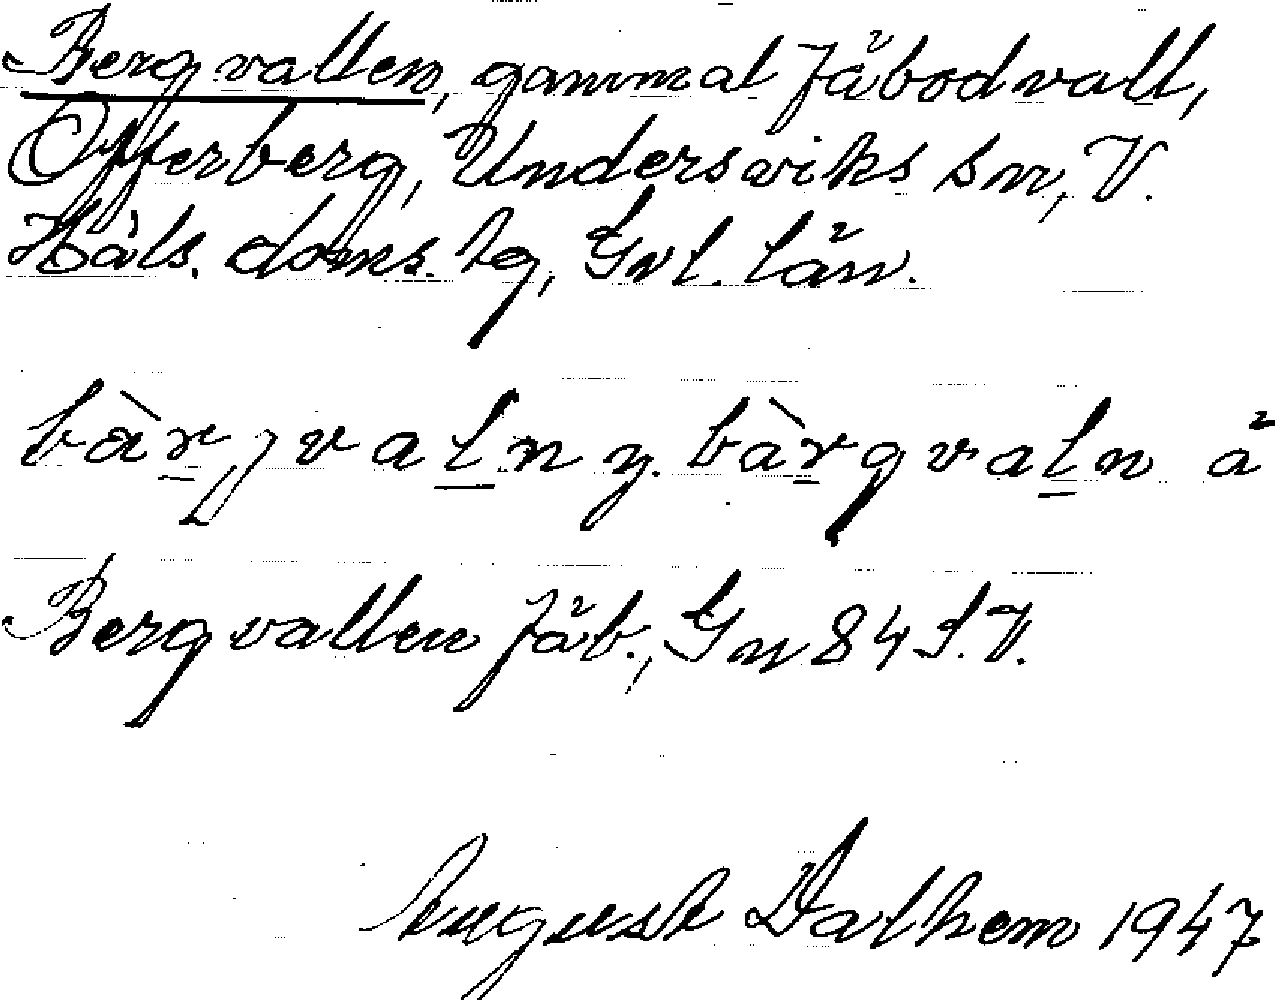 Bergvallen, gammal fäbodvall,
Offerberg, Undersviks sn, V.
Häls. doms. tg, Gvl. län.
bàrjvaln y. bàrgvaln ä
Bergvallen fäb., Gn 84 S.V.
August Dalhem 1947